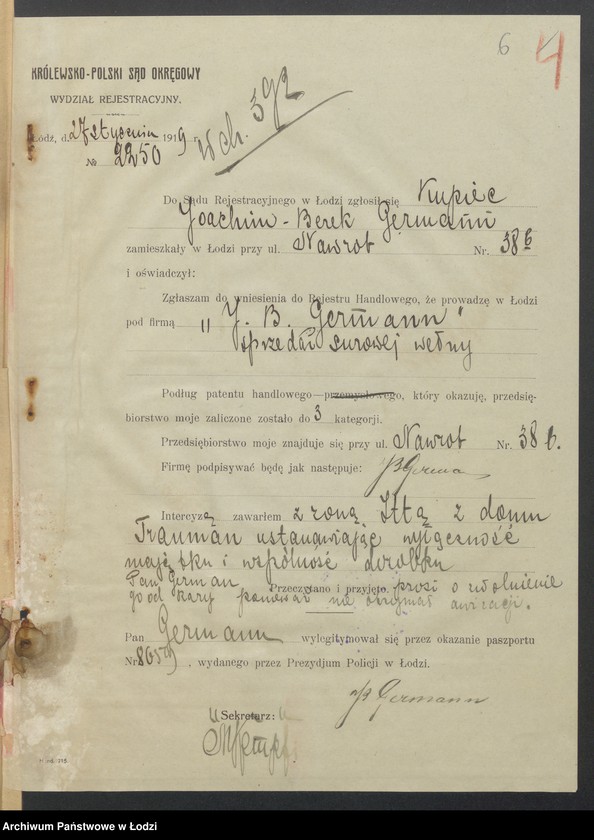 6 4
KRÓLEWSKO-POLSKI SĄD OKRĘGOWY
WYDZIAŁ REJESTRACYJNY.
Łódź, d. 27 stycznia 1919 r.
№ 2250
Do Sądu Rejestracyjnego w Łodzi zgłosił się Kupiec
Joachim-Berek Germann
zamieszkały w Łodzi przy ul. Nawrot Nr. 38 b
i oświadczył:
Zgłaszam do wniesienia do Rejestru Handlowego, że prowadzę w Łodzi
pod firmą „J. B. Germann"
sprzedaż surowej wełny
Podług patentu handlowego—przemysłowego, który okazuję, przedsię-
biorstwo moje zaliczone zostało do 3 kategorji.
Przedsiębiorstwo moje znajduje się przy ul. Nawrot Nr. 38 b.
Firmę podpisywać będę jak następuje: JB Germann
Intercyzą zawarłem z żoną Ittą z domu
Trauman ustanawiając wyłączność
majątku i wspólność dorobku
Pan German Przeczytano i przyjęto. prosi o uwolnienie
go od kary ponieważ nie otrzymał awizacji.
Pan Germann wylegitymował się przez okazanie paszportu
Nr 8059, wydanego przez Prezydjum Policji w Łodzi.
JB Germann
Sekretarz:
Archiwum Państwowe w Łodzi